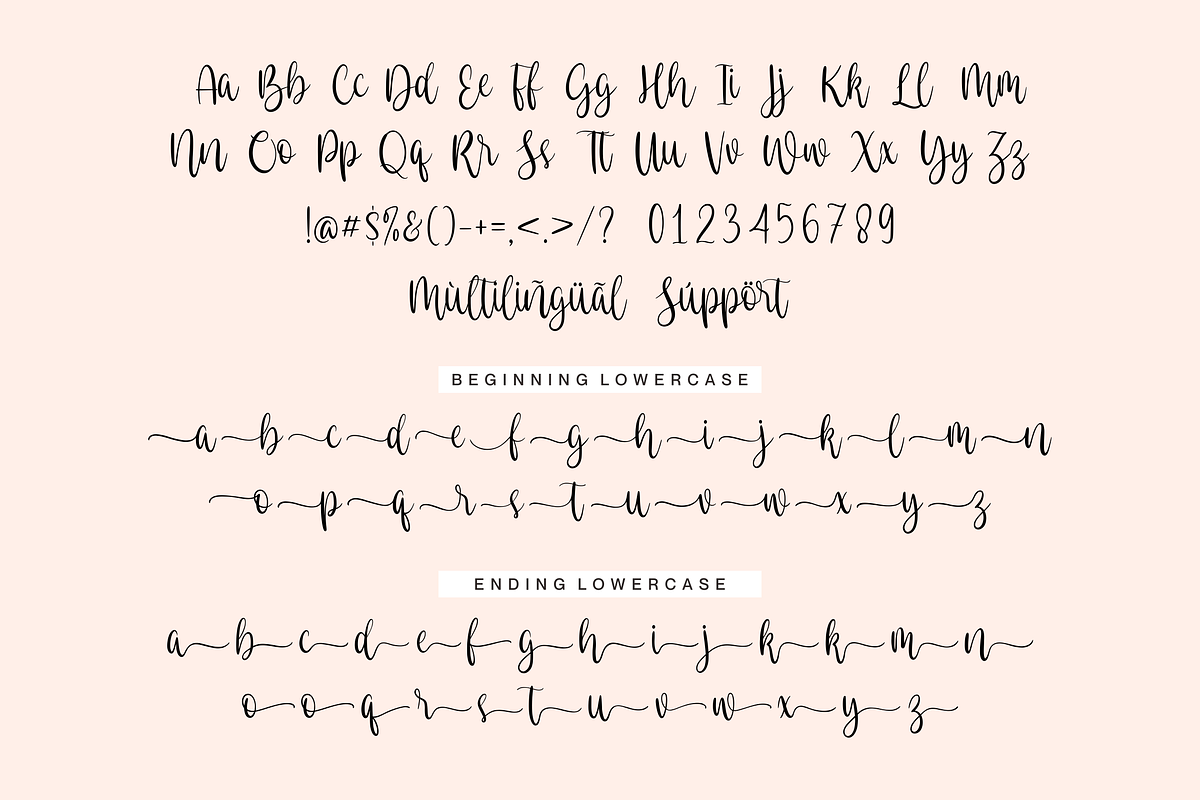 Aa Bb Cc Dd Ee Ff Gg Hh Ii Jj Kk Ll Mm
Nn Oo Pp Qq Rr Ss Tt Uu Vv Ww Xx Yy Zz
!@#$%&()-+=,<.>/? 0123456789
Mùltiliñgüãl Súppört
BEGINNING LOWERCASE
a b c d e f g h i j k l m n
o p q r s t u v w x y z
ENDING LOWERCASE
a b c d e f g h i j k k m n
o o q r s t u v w x y z